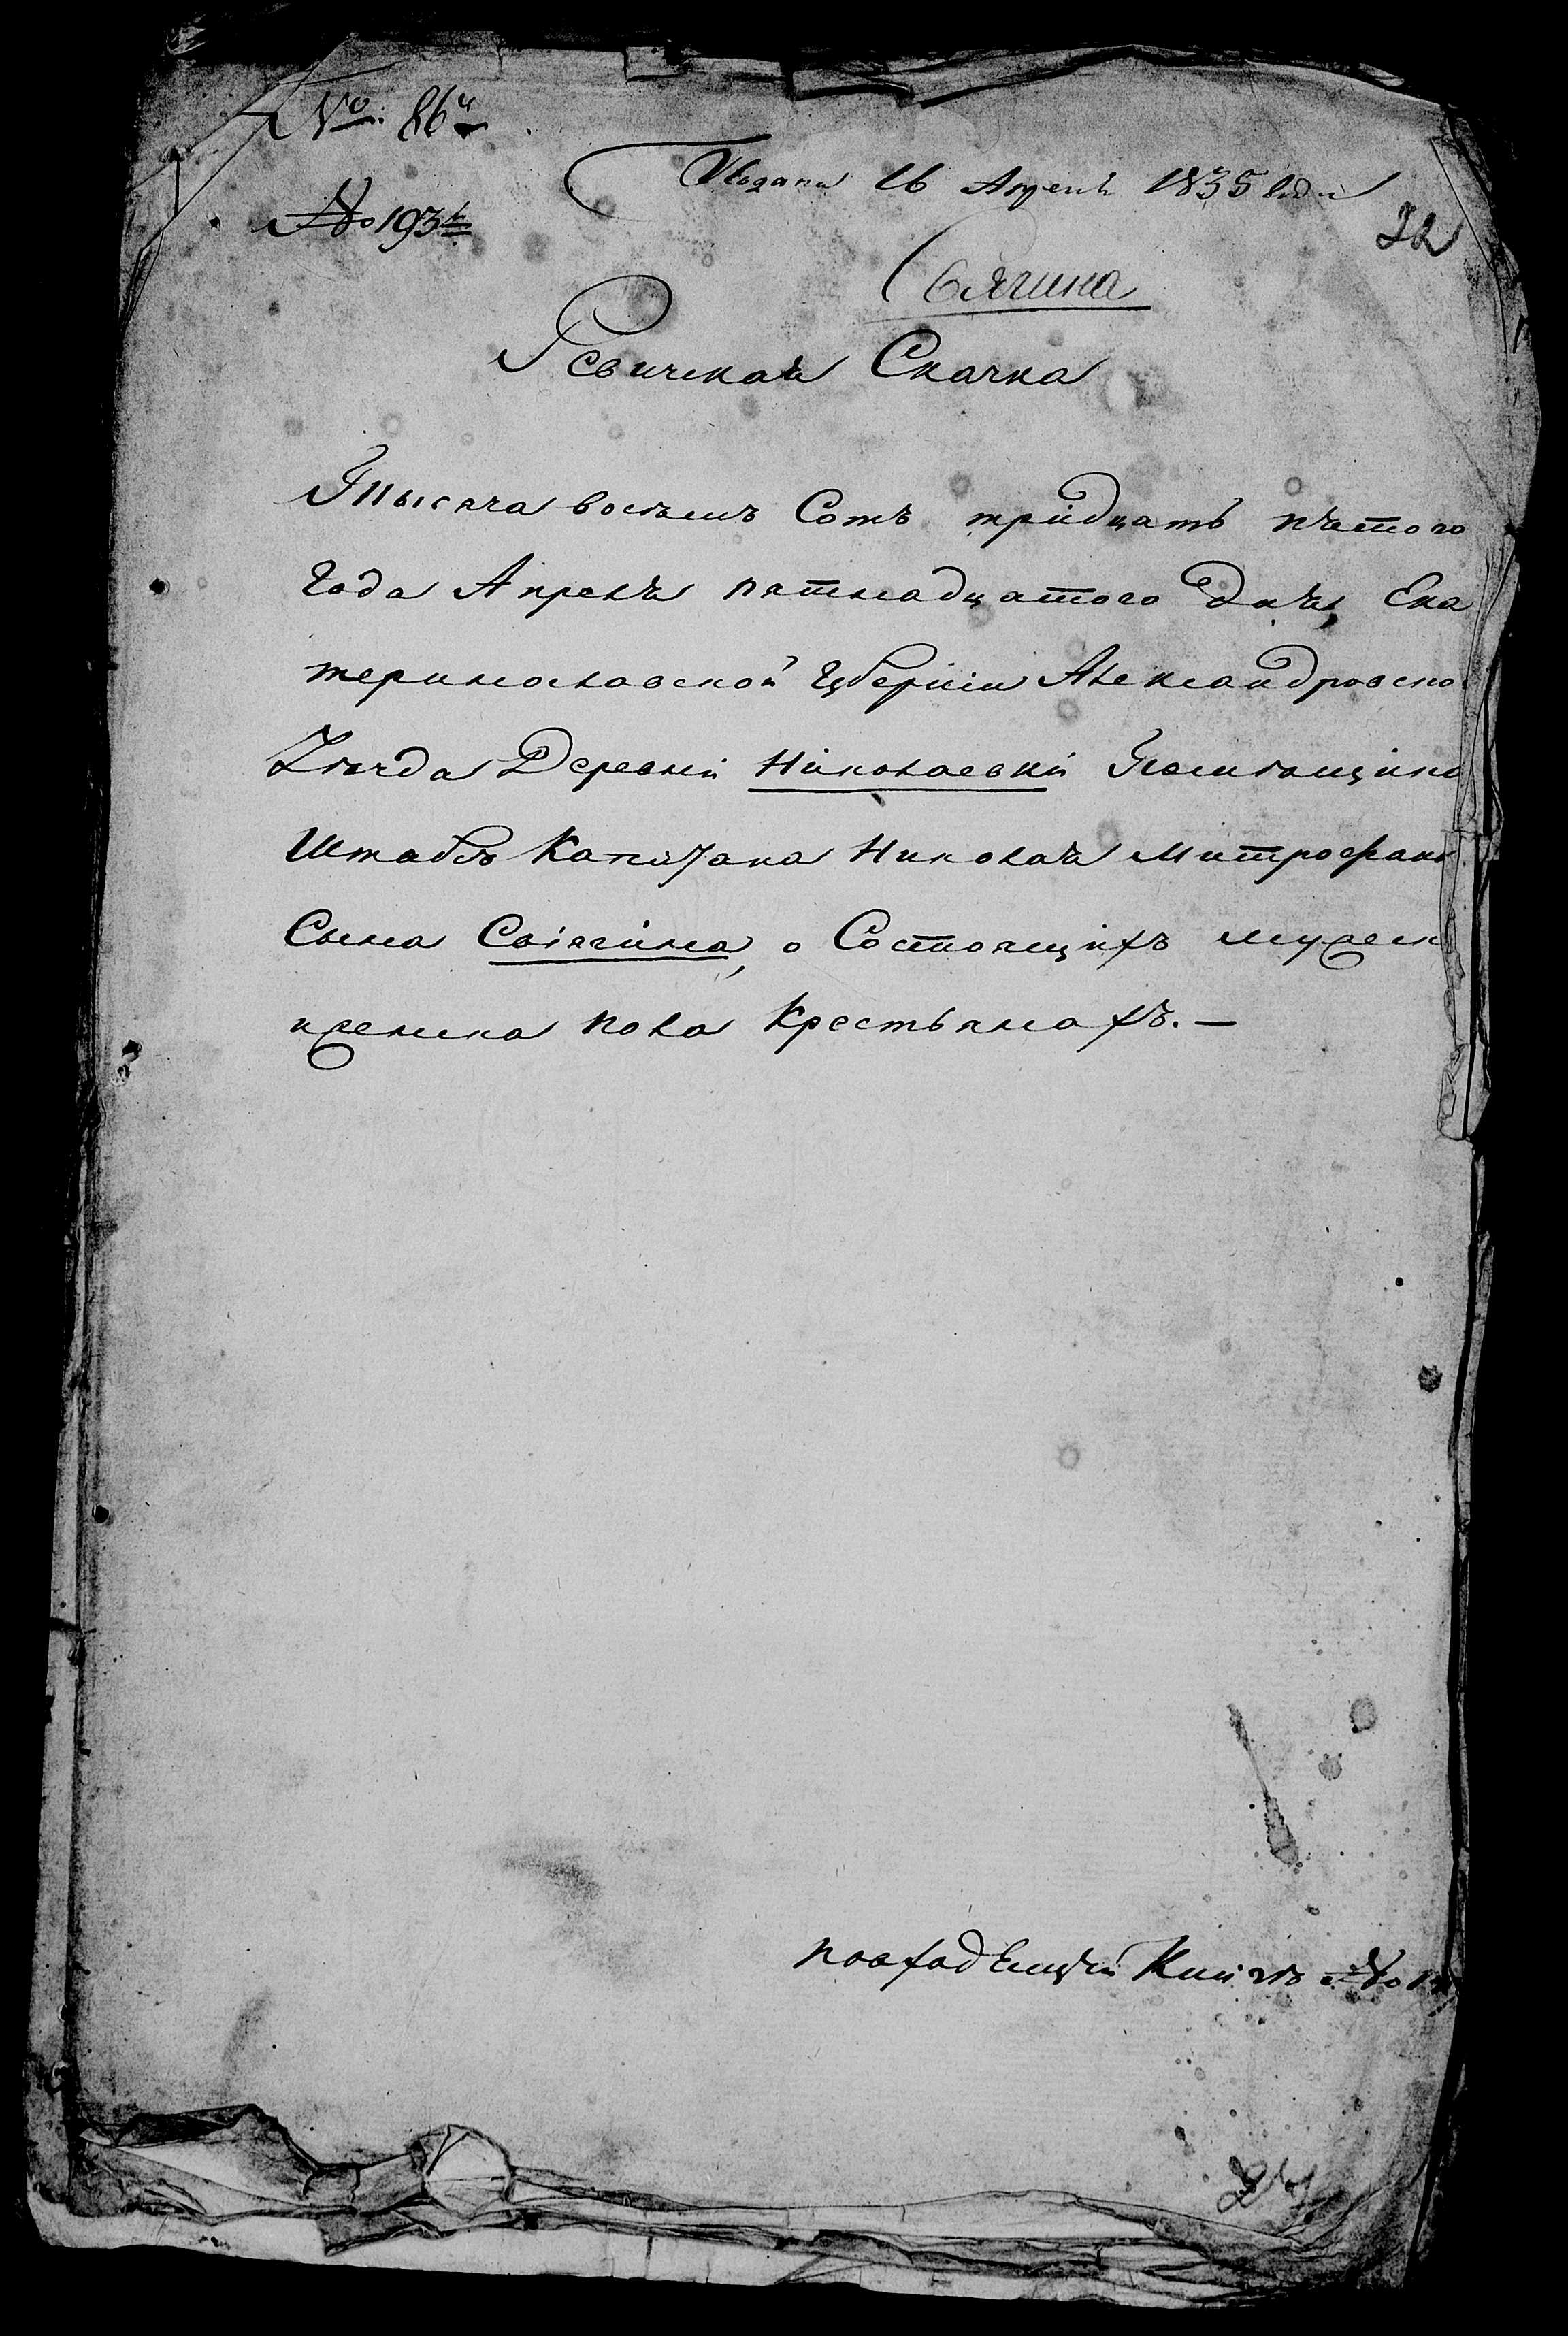 No: 86й
Подана 16 Апреля 1835 года
No 193й
22
Свягина
Ревизская Сказка
Тысяча восемъ Сотъ тридцать пятого
Года Апреля пятнадцатого дня, Ека
теринославской Губерніи Александровско
Уѣзда Деревни Николаевки Помѣщика
Штабсъ Капитана Николая Митрофано
Сына Свіягина, о Состоящихъ мужеск
и женска пола Крестьянахъ. —
по входЯщей Книгѣ No